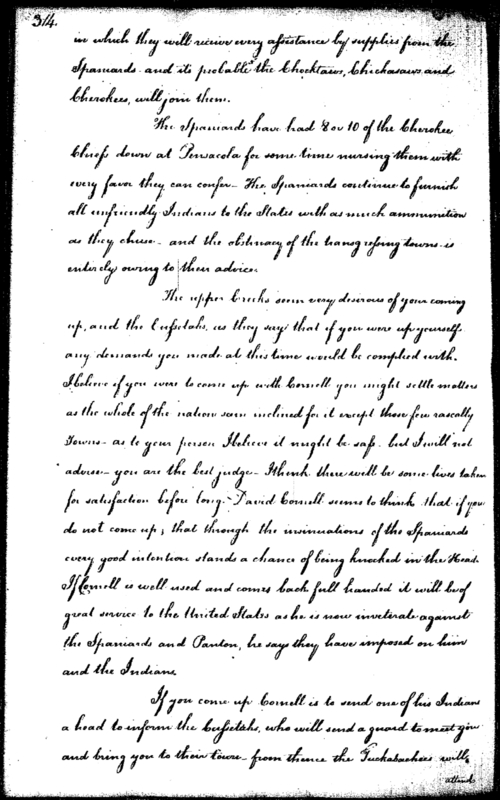 314.
in which they will receive every assistance by supplies from the
Spaniards and its probable the Chocktaws, Chickasaws and
Cherokees, will join them.
The Spaniards have had 8 or 10 of the Cherokee
Chiefs down at Pensacola for some time nursing them with
every favor they can confer - The Spaniards continue to furnish
all unfriendly Indians to the States with as much ammunition
as they chuse - and the obstinacy of the transgressing towns is
entirely owing to their advice.
The upper Creeks seem very desirous of your coming
up, and the Cussetahs, as they say that if you were up yourself
any demands you made at this time would be complied with.
I believe if you were to come up with Cornell you might settle matters
as the whole of the nation seem inclined for it except those few rascally
Towns - as to your person I believe it might be safe - but I will not
advise - you are the best judge - I think there will be some lives taken
for satisfaction before long - David Cornell seems to think that if you
do not come up, that through the insinuations of the Spaniards
every good intention stands a chance of being knocked in the Head.
If Cornell is well used and comes back full handed it will be of
great service to the United States as he is now inveterate against
the Spaniards and Panton, he says they have imposed on him
and the Indians.
If you come up Cornell is to send one of his Indians
a head to inform the Cussetahs, who will send a guard to meet you
and bring you to their town - from thence the Tuckabachees will
attend